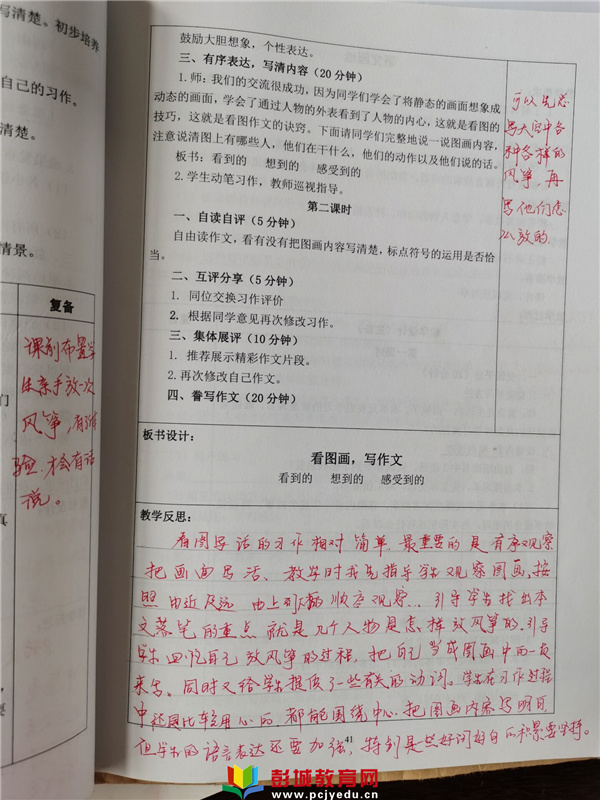 写清楚。初步培养
自己的习作。
清楚。
情景。
复备
课前布置学
生亲手放一次
风筝,有
验,才会有话
说。
们
真
鼓励大胆想象,个性表达。
三、有序表达,写清内容(20分钟)
1.师:我们的交流很成功,因为同学们学会了将静态的画面想象成
动态的画面,学会了通过人物的外表看到了人物的内心,这就是看图的
技巧,这就是看图作文的诀窍。下面请同学们完整地说一说图画内容,
注意说清图上有哪些人,他们在干什么,他们的动作以及他们说的话。
板书:看到的 想到的 感受到的
2.学生动笔习作,教师巡视指导。
第二课时
一、自读自评(5分钟)
自由读作文,看有没有把图画内容写清楚,标点符号的运用是否恰
当。
二、互评分享(5分钟)
1. 同位交换习作评价
2. 根据同学意见再次修改习作。
三、集体展评(10分钟)
1. 推荐展示精彩作文片段。
2.再次修改自己作文。
四、誊写作文(20分钟)
可以先总
写天空中各
种各样的
风筝,再
写他们怎
么放的
板书设计:
看图画,写作文
看到的 想到的 感受到的
教学反思:
看图写话的习作相对简单,最重要的是有序观察
把画面写活、教学时我先指导学生观察图画,按
照由近及远 由上到 顺序观察,引导学生找出本
文落笔的重点就是几个人物是怎样放风筝的,引导
学生回忆自己放风筝的过程,把自己当成图画中的一员
来写。同时又给学生提供了一些有关的动词。学生在习作过程
中还是比较用心的,都能围绕中心,把图画内容写明白
但学生的语言表达还要加强,特别是些好词好句的积累要坚持。
41
彭城教育网
www.pcjyedu.cn